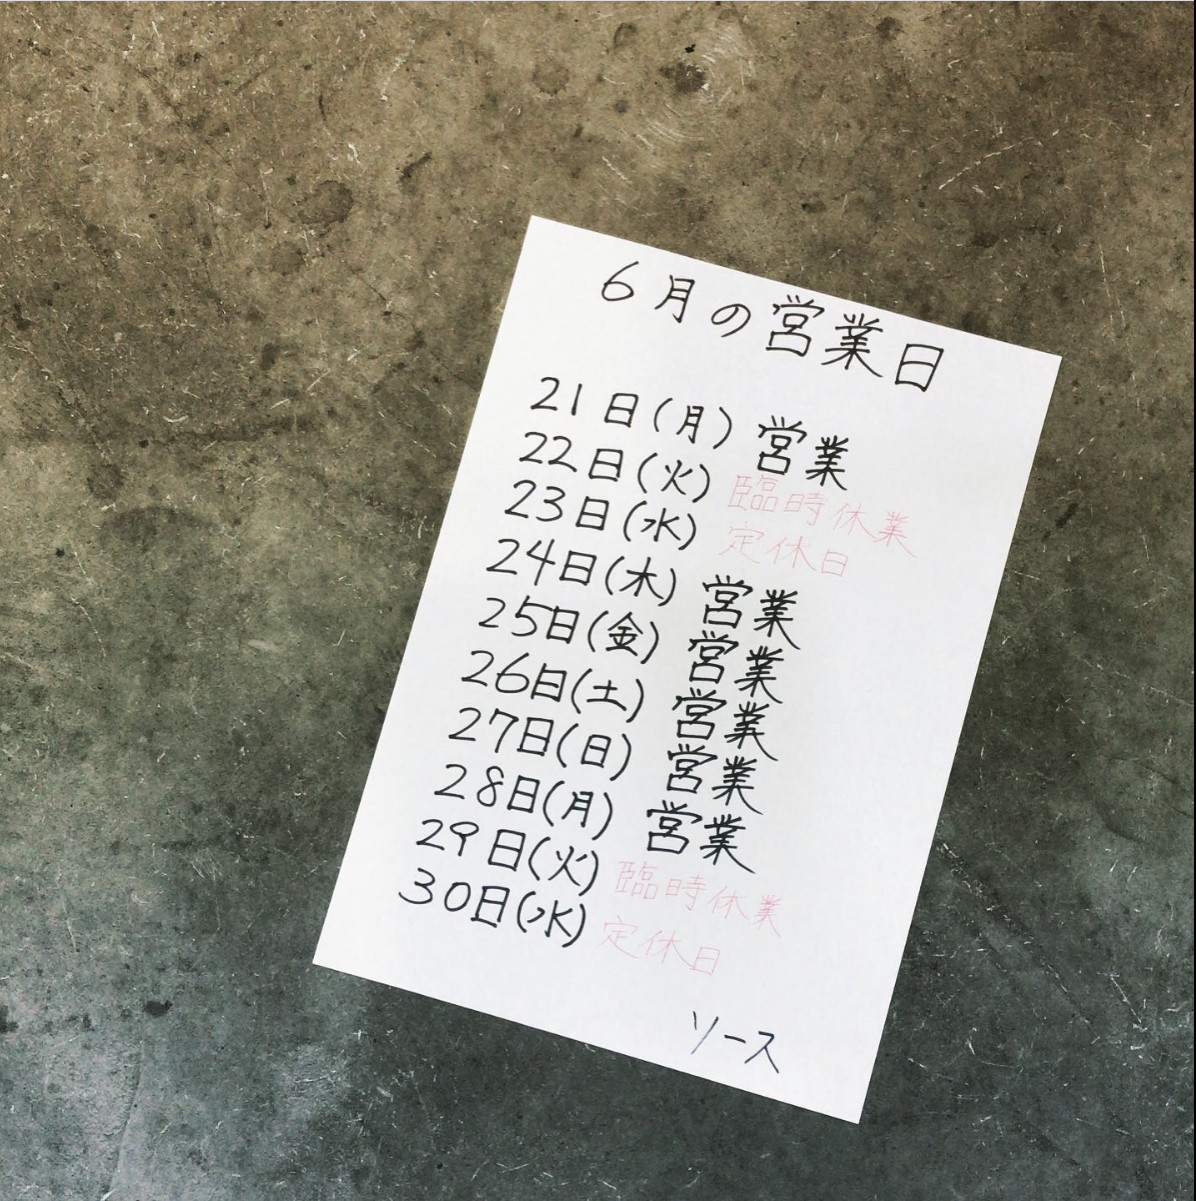 6月の営業日
21日(月) 営業
22日(火) 臨時休業
23日(水) 定休日
24日(木) 営業
25日(金) 営業
26日(土) 営業
27日(日) 営業
28日(月) 営業
29日(火) 臨時休業
30日(水) 定休日
ソース